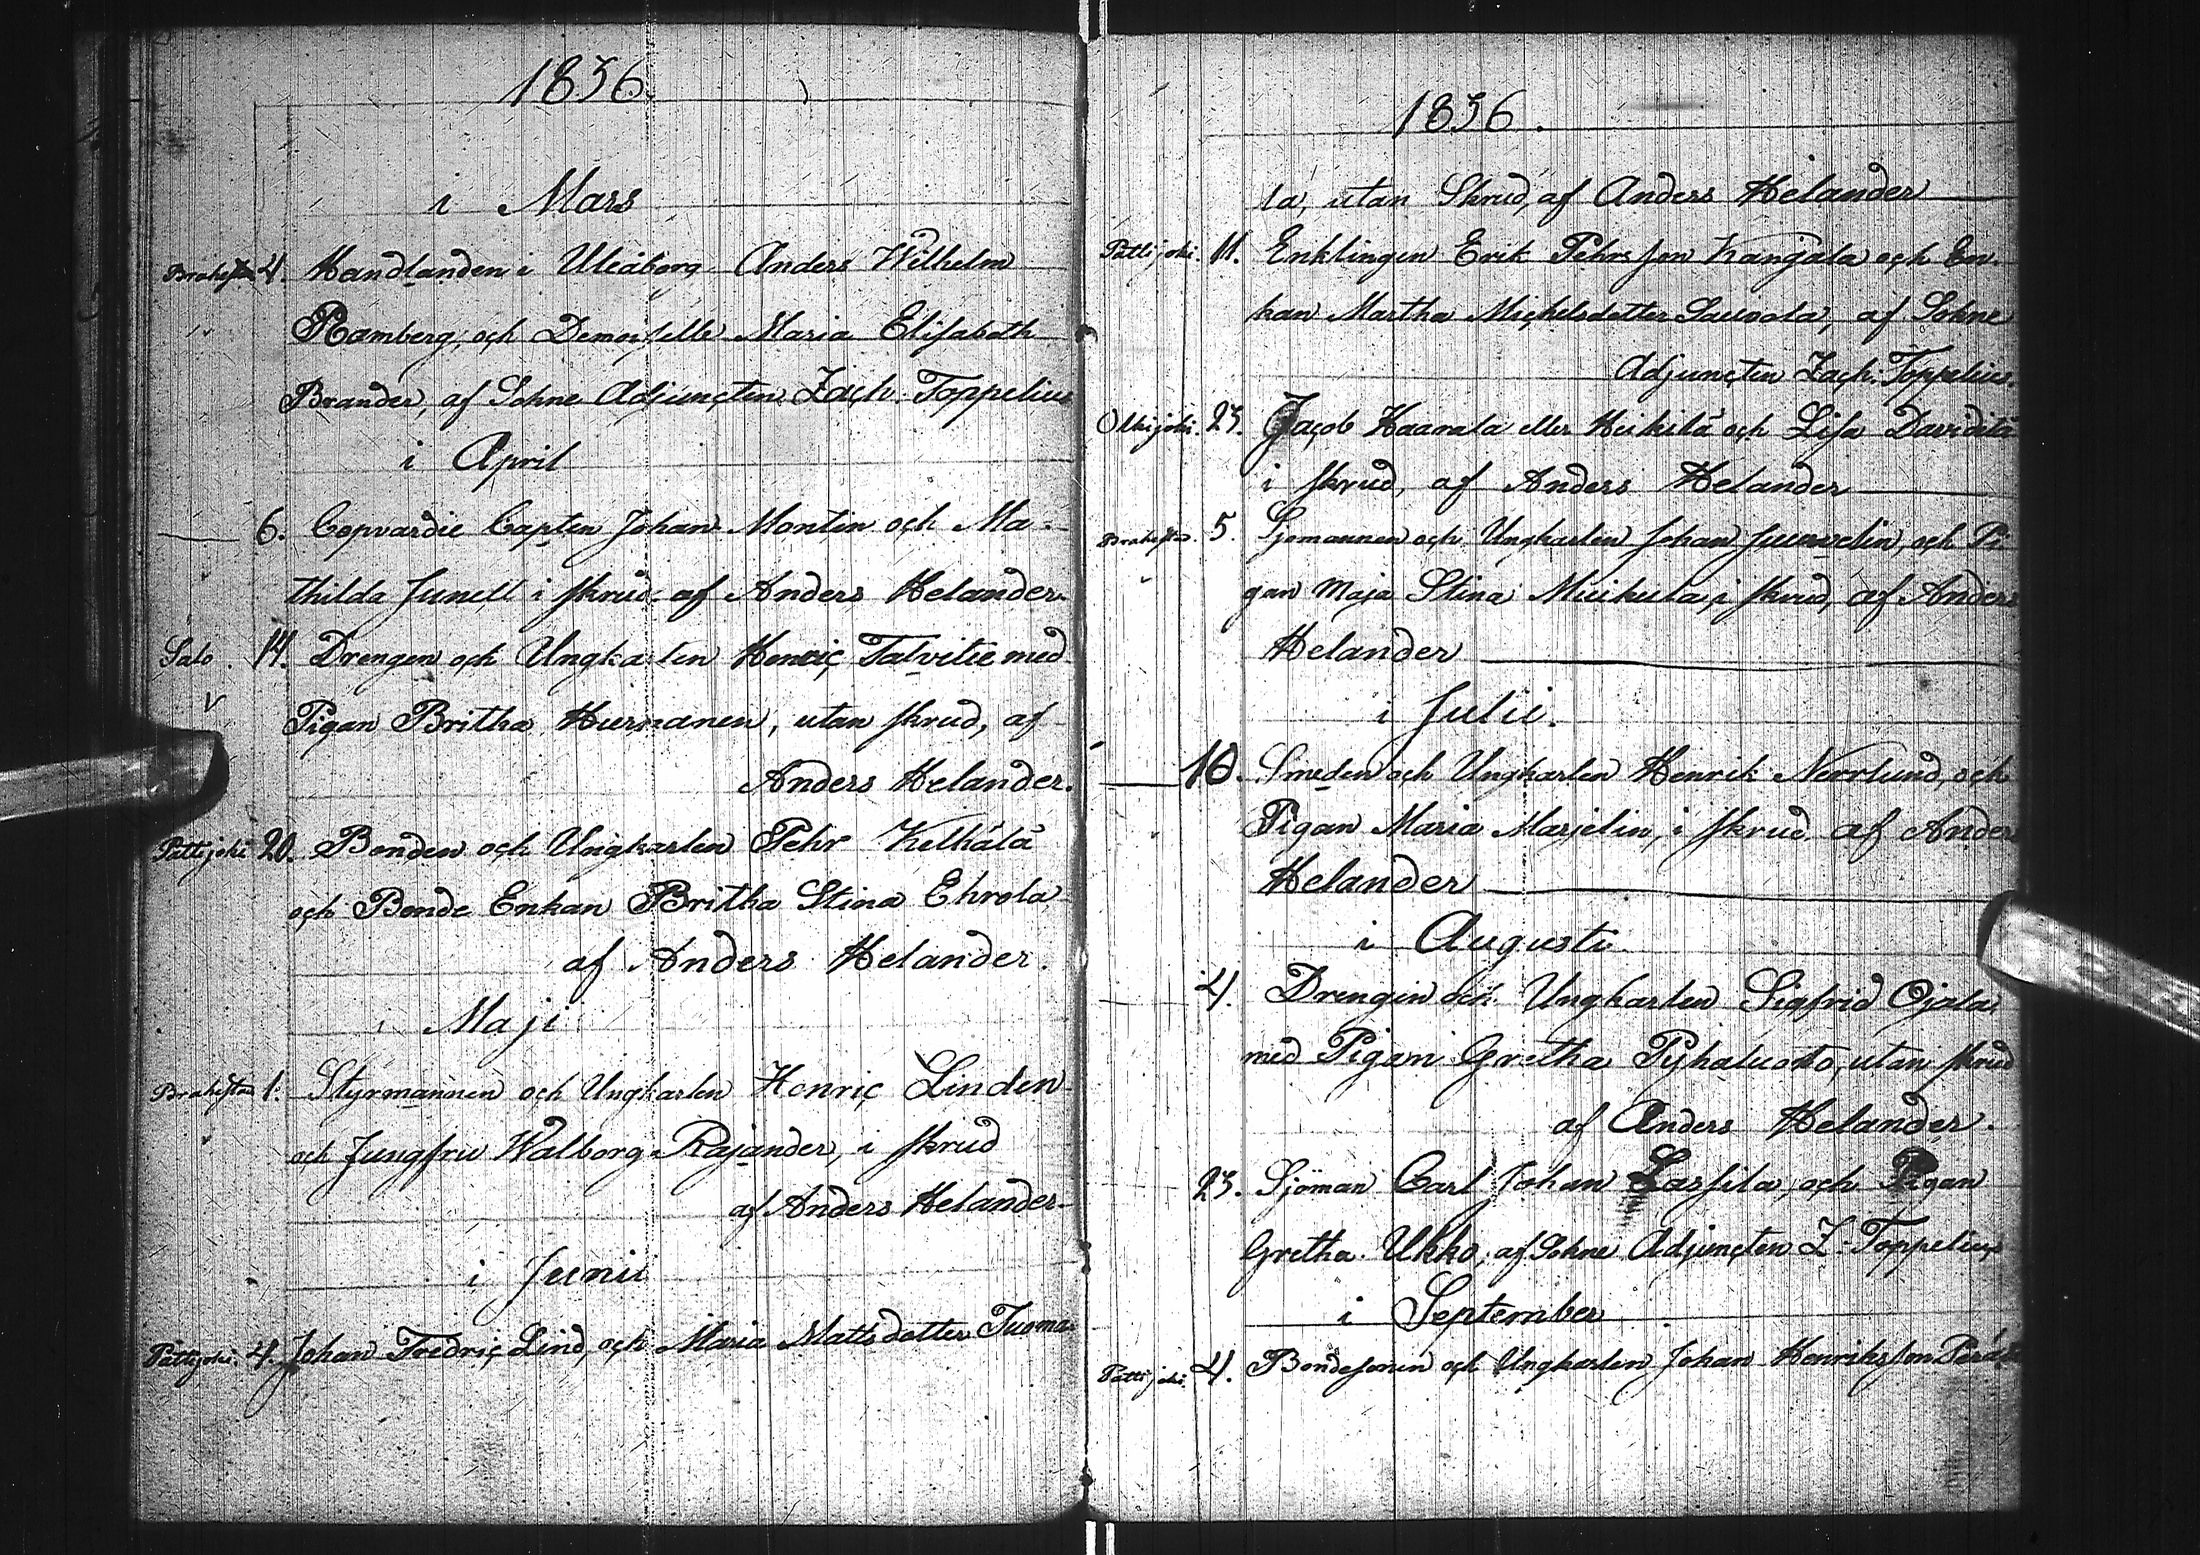 1836.
i Mars
Brahestad 4. Handlanden i Uleåborg Anders Wilhelm
Ramberg, och Demoiselle Maria Elisabeth
Brander, af Sokne Adjuncten Zach. Toppelius
i April
6. Copvardie Capten Johan Montin och Ma-
thilda Junell i skrud af Anders Helander.
Salo. 14. Drengen och Ungkarlen Henric Talvitie med
Pigan Britha Hurnanen, utan skrud, af
Anders Helander.
Pattijoki 20. Bonden och Ungkarlen Pehr Kelhälä
och Bonde Enkan Britha Stina Ehrola
af Anders Helander.
Maji
Brahestad 1. Styrmannen och Ungkarlen Henric Linden
och Jungfru Walborg Rajander, i skrud
af Anders Helander.
i Junii
Pattijoki. 4. Johan Fredric Lind, och Maria Mattsdotter Tuoma-
1836.
la, utan Skrud, af Anders Helander
Pattijoki. 11. Enklingen Erik Pehrsson Kangala och En-
kan Martha Michelsdotter Sauvola, af Sokne
Adjuncten Zach. Toppelius.
Olkijoki. 23. Jacob Haarala eller Heikilä och Lisa Davidilä
i skrud, af Anders Helander
Brahestad. 5. Sjömannen och Ungkarlen Johan Juuvelin, och Pi
gan Maja Stina Miukula, i skrud, af Anders
Helander
i Julii.
10. Smeden och Ungkarlen Henrik Norrlund, och
Pigan Maria Marjelin, i skrud af Anders
Helander
i Augusti
4. Drengen och Ungkarlen Sigfrid Ojala
med Pigan Gretha Pyhäluoto, utan skrud
af Anders Helander.
23. Sjöman Carl Johan Lassila, och Pigan
Gretha Ukko, af Sokne Adjuncten Z. Toppelius
i September
Pattijoki. 4. Bondesonen och Ungkarlen Johan Henriksson